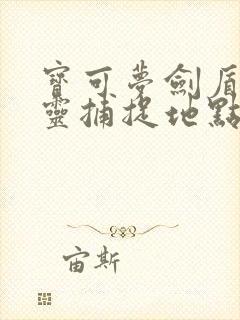 寶可夢劍盾
靈捕捉地點
宙斯